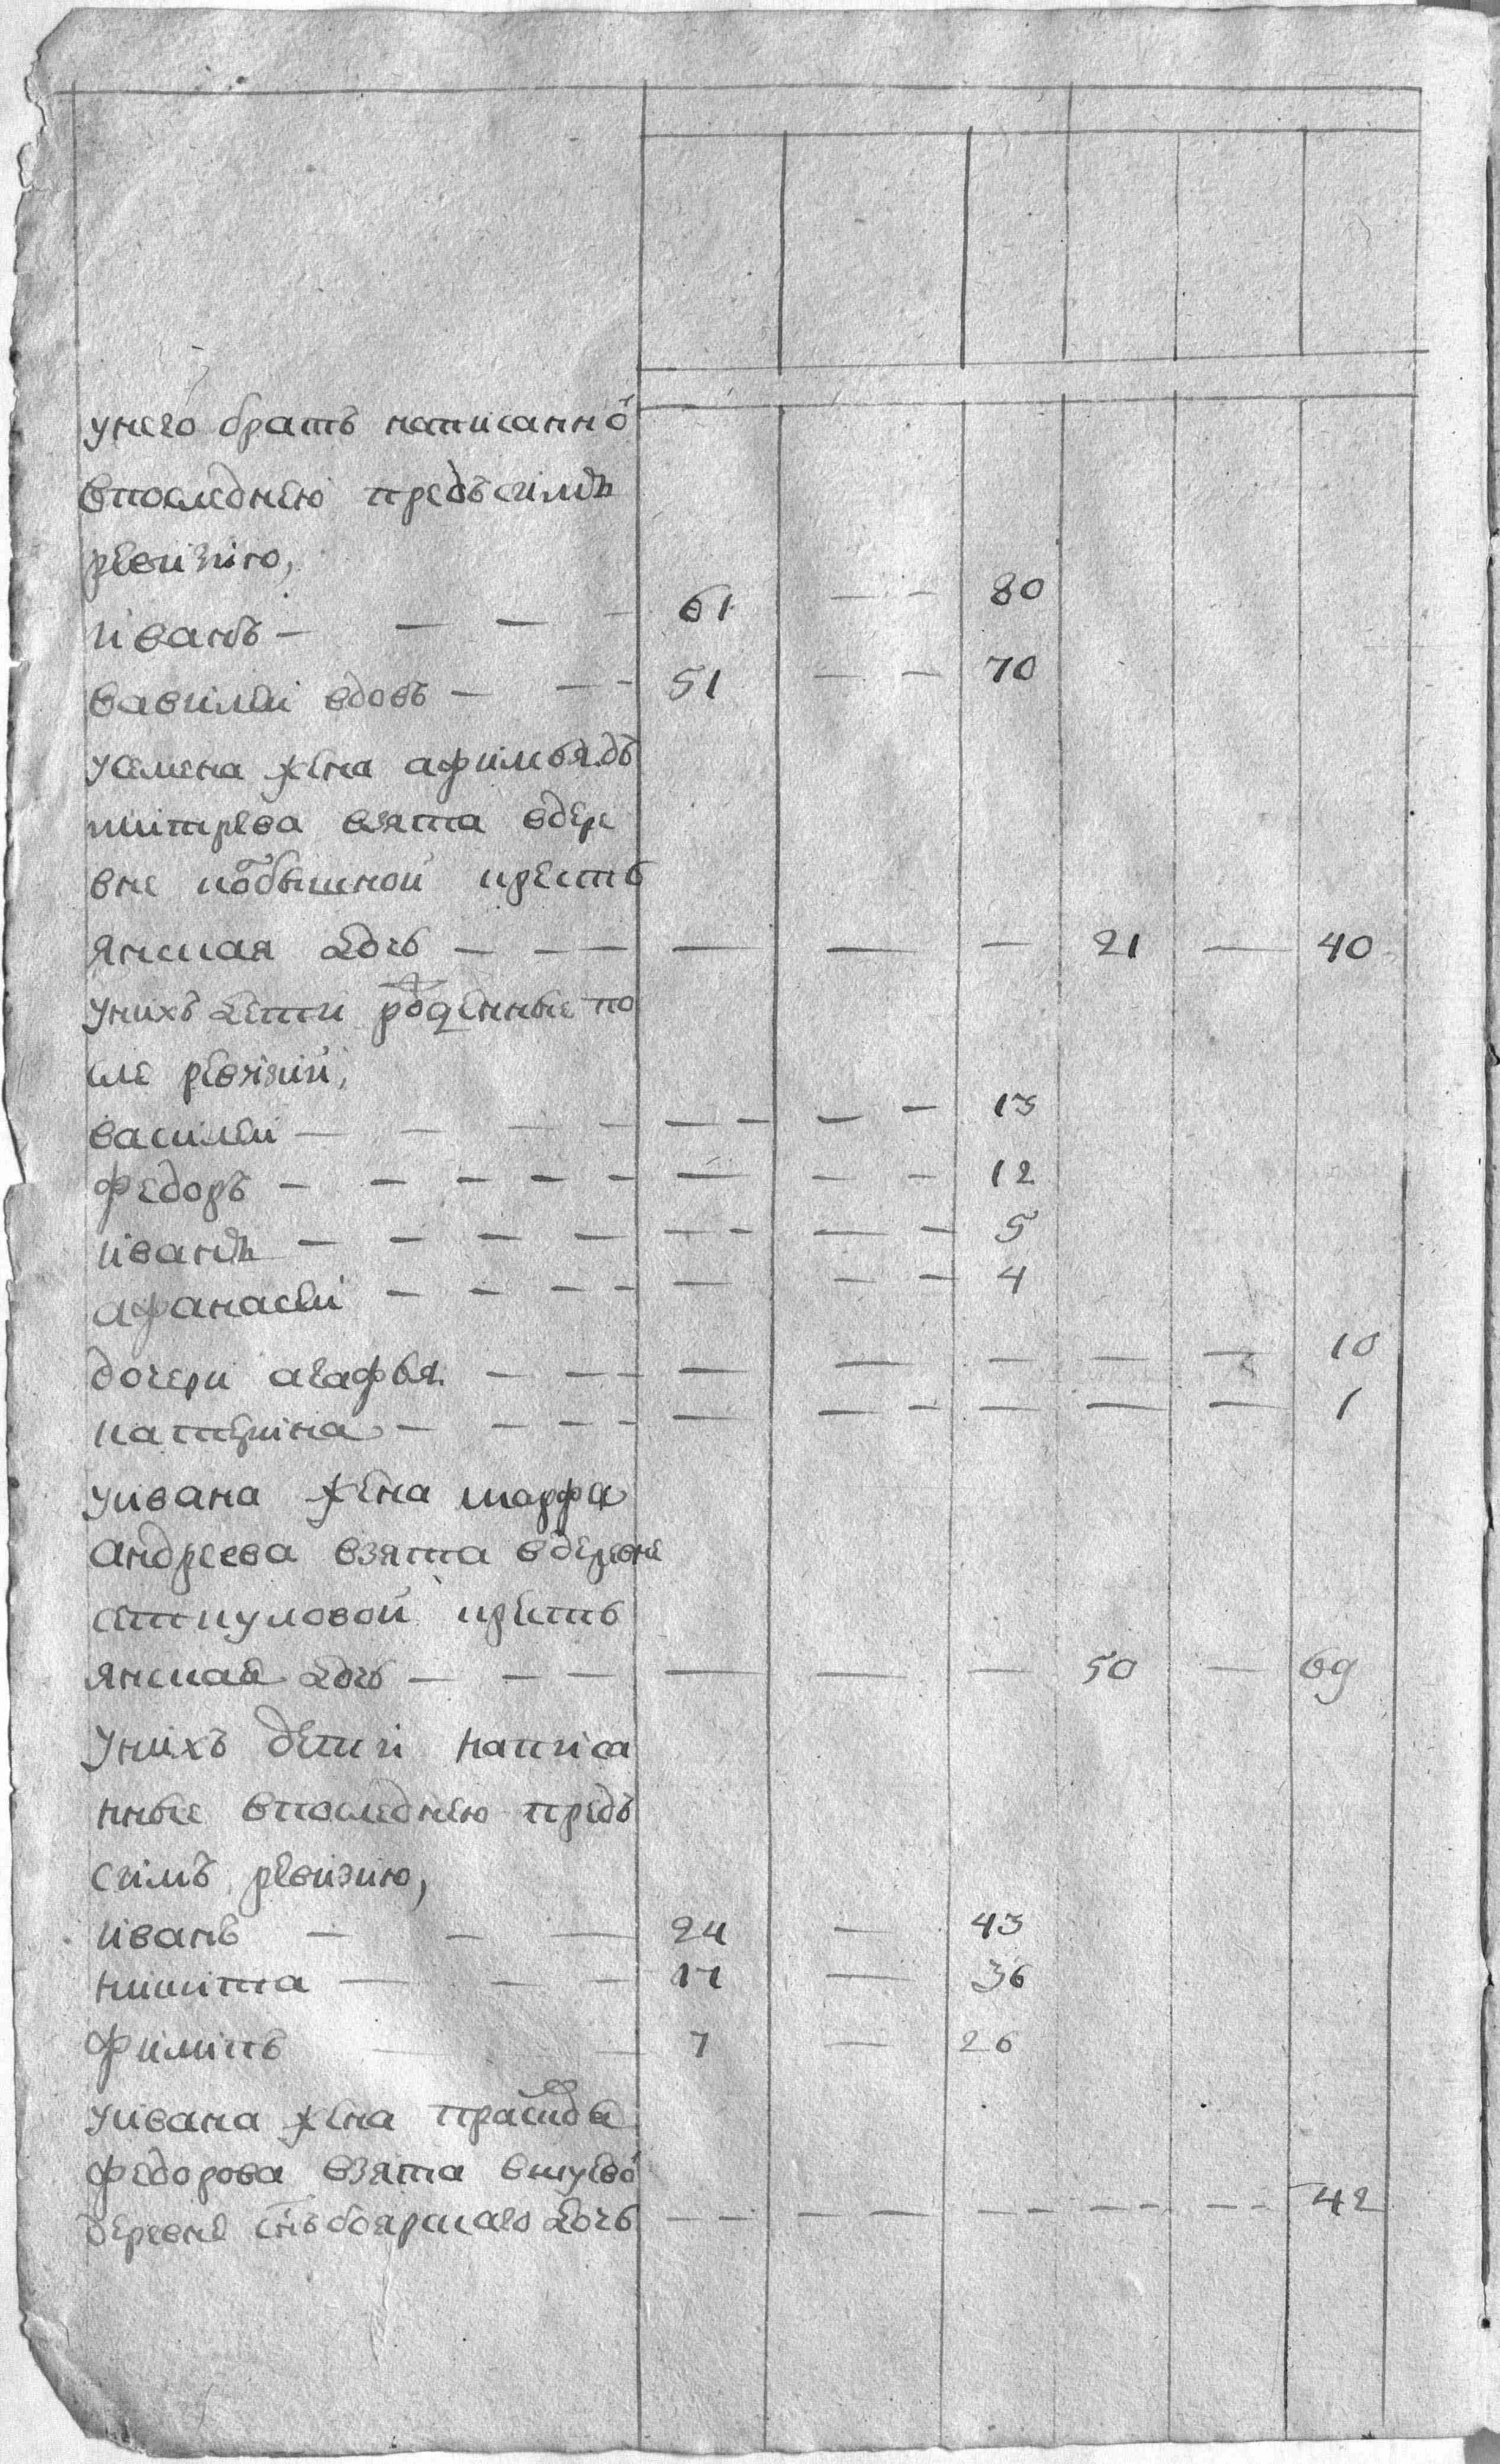 унего братъ написанно
впоследнею предъсимъ
ревизию,
иванъ — — — — 61 — — 80
василей вдовъ — — — 51 — — 70
усемена жена афимья дъ
митрева взята вдере
вне кобышной кресть
янская дочь — — — — — — 21 — 40
унихъ дети рожденные по
сле ревизии,
василей — — — — — — — — 13
федоръ — — — — — — — — 12
иванъ — — — — — — — — 5
афанасей — — — — — — — 4
дочери агафья — — — — — — — — 10
катерина — — — — — — — — — — 1
уивана жена марфа
андреева взята вдеревне
сткуловой кресть
янская дочь — — — — — — 50 — 69
унихъ дети написа
нные впоследнею предъ
симъ ревизию,
иванъ — — — 24 — 43
никита — — — 17 — 36
филипъ — — 7 — 26
уивана жена
федорова взята
деревне снъбоярскаго дочь — — — — — — — — — — 42